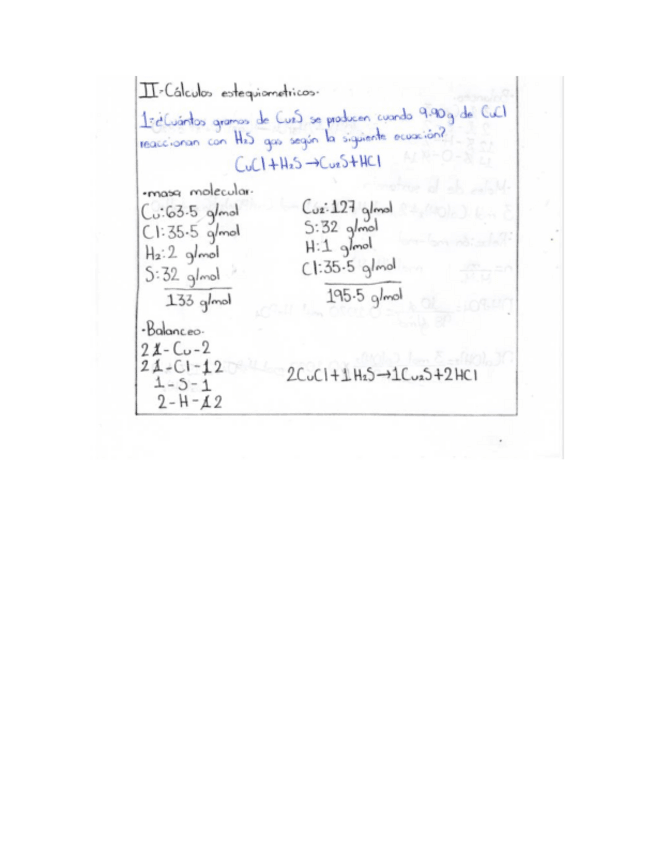 II-Cálculos estequiometricos.
1-¿Cuántos gramos de Cu₂S se producen cuando 9.90g de CuCl
reaccionan con H₂S gas según la siguiente ecuación?
CuCl+H₂S→Cu₂S+HCl
•masa molecular.
Cu:63.5 g/mol
Cl:35.5 g/mol
H₂:2 g/mol
S:32 g/mol
133 g/mol
Cu₂:127 g/mol
S:32 g/mol
H:1 g/mol
Cl:35.5 g/mol
195.5 g/mol
•Balanceo.
2 1-Cu-2
2 1-Cl-1 2
1-S-1
2-H-1 2
2CuCl+1H₂S→1Cu₂S+2HCl